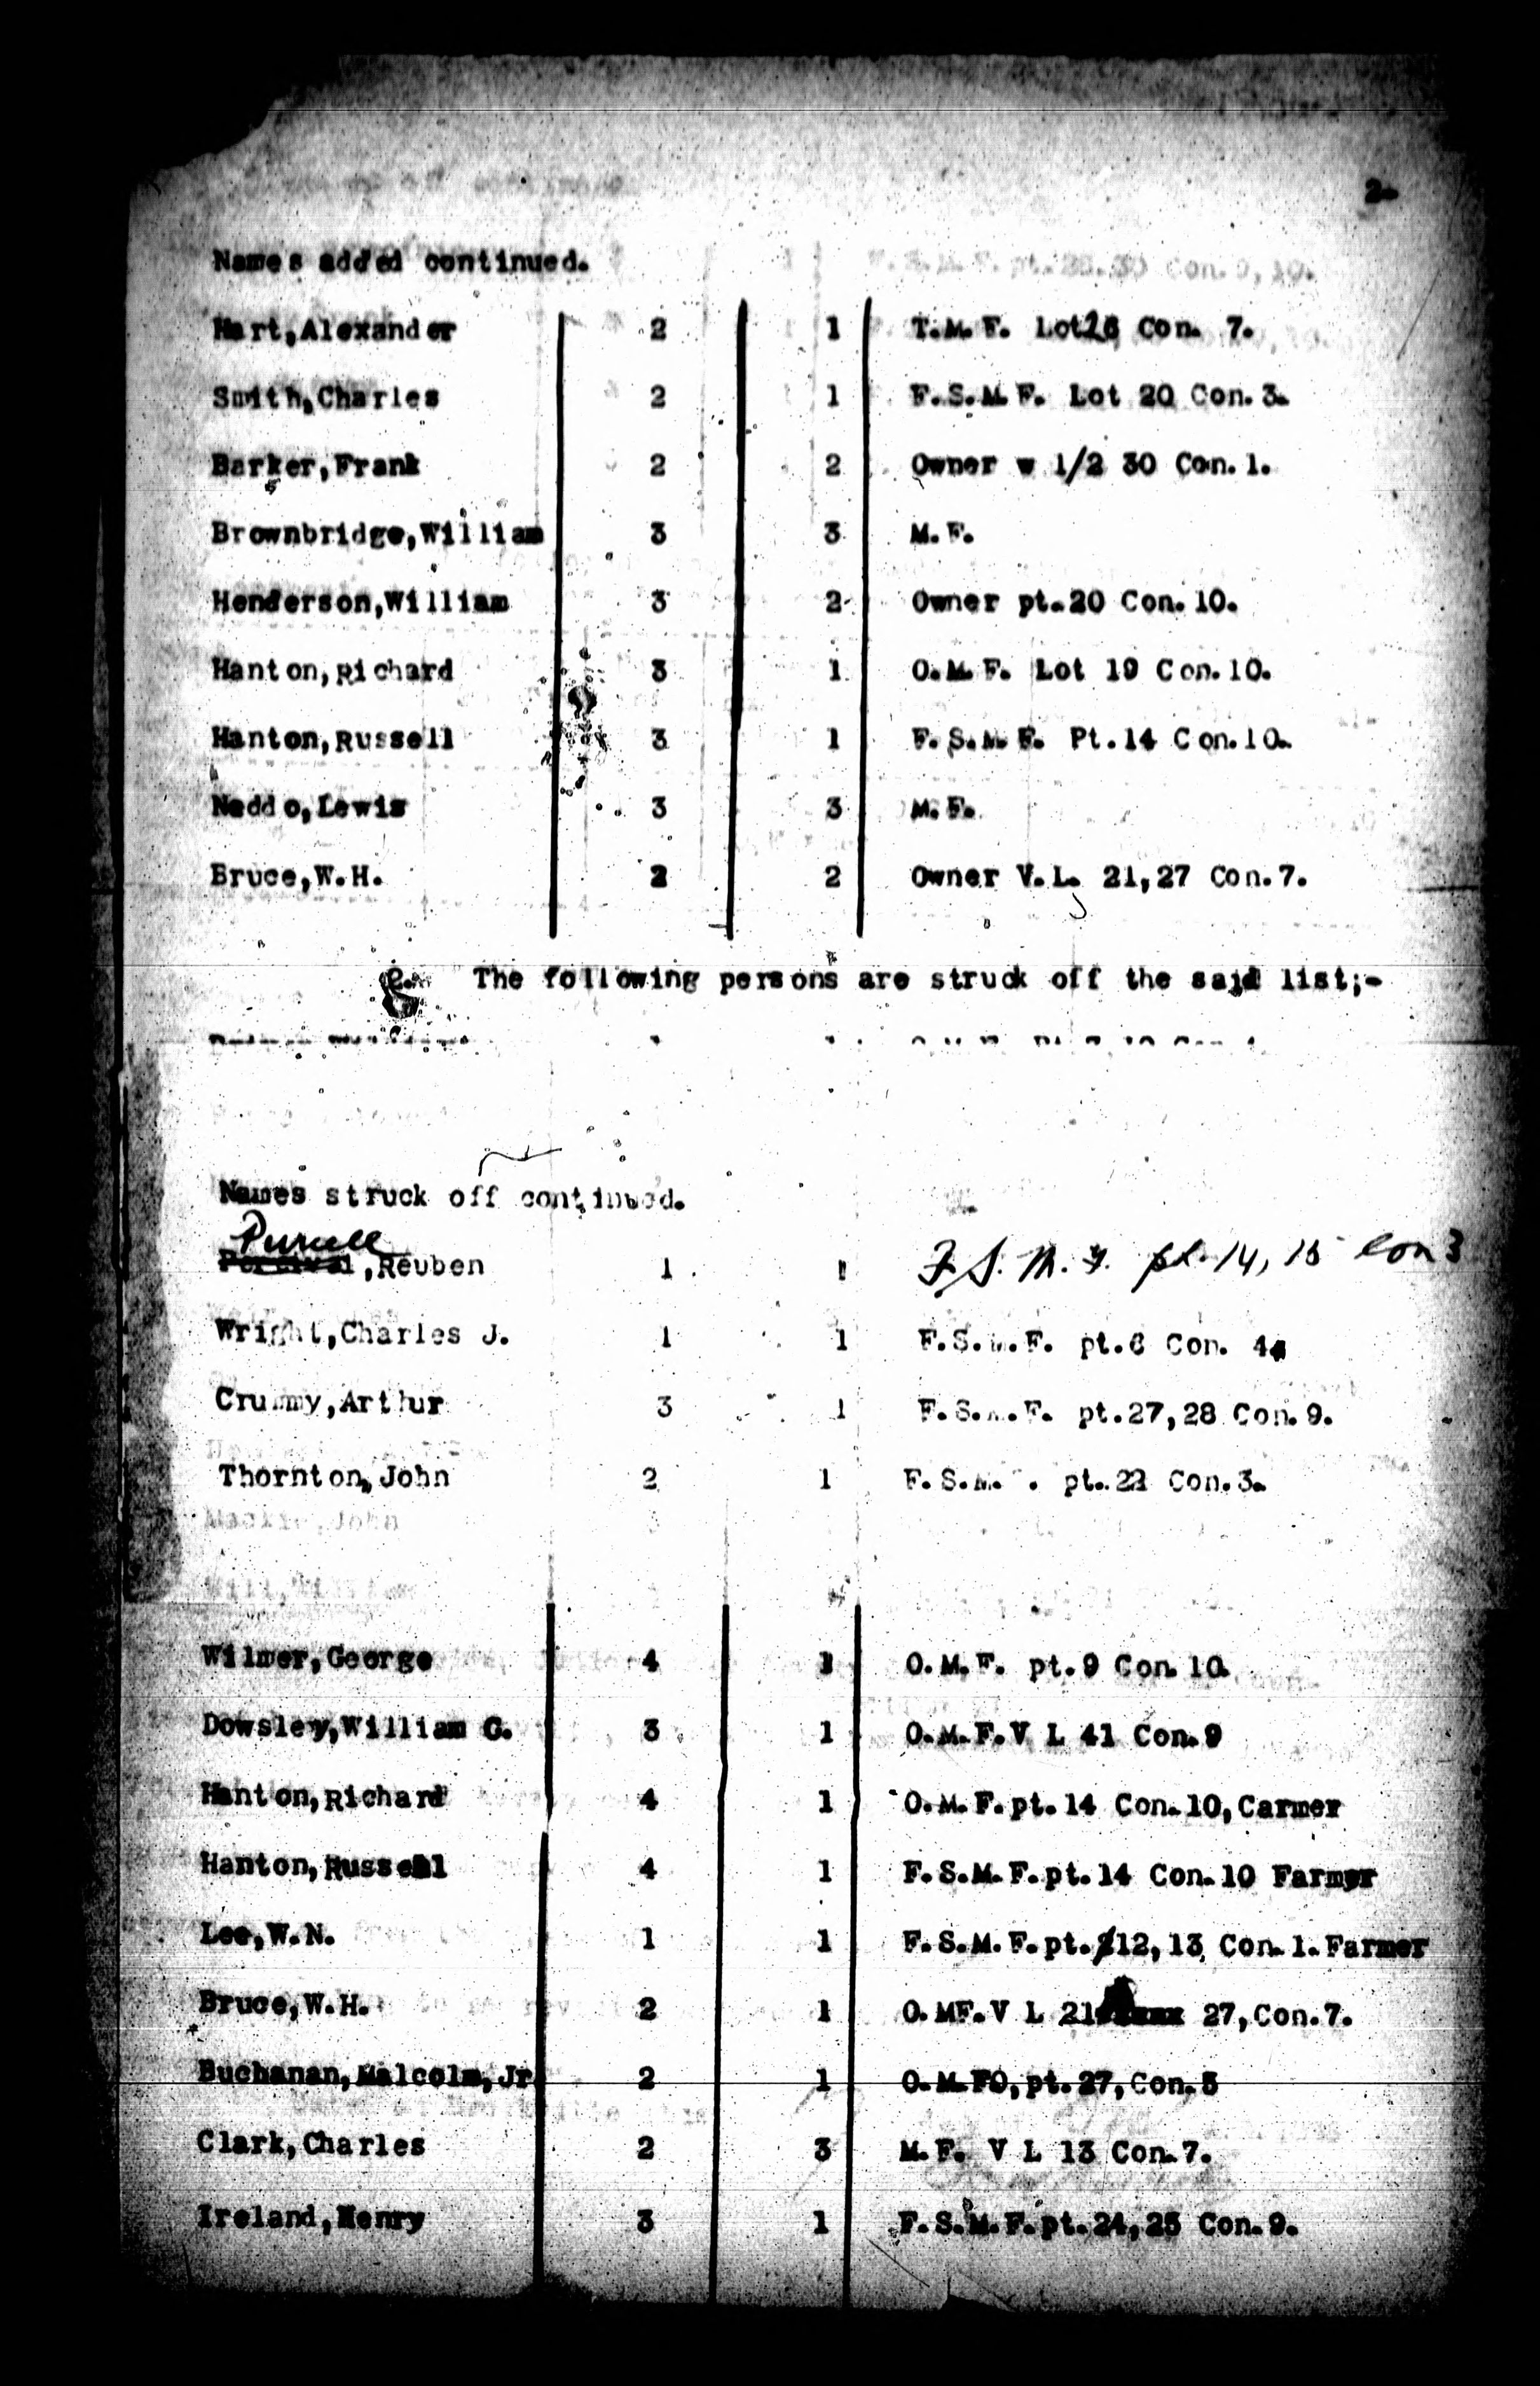 2-
Names added continued.
Hart,Alexander 2 1 T.M.F. Lot 16 Con. 7.
Smith,Charles 2 1 F.S.M.F. Lot 20 Con.3.
Barker,Frank 2 2 Owner w 1/2 30 Con.1.
Brownbridge,William 3 3 M.F.
Henderson,William 3 2 Owner pt.20 Con.10.
Hanton,Richard 3 1 O.M.F. Lot 19 Con.10.
Hanton,Russell 3 1 F.S.M.F. Pt.14 Con.10.
Neddo,Lewis 3 3 M.F.
Bruce,W.H. 2 2 Owner V.L. 21,27 Con.7.
2. The following persons are struck off the said list;-
Names struck off continued.
Purcell
,Reuben 1 1 F.S.M.F. pt.14, 15 Con 3
Wright,Charles J. 1 1 F.S.M.F. pt.6 Con. 4.
Crummy,Arthur 3 1 F.S.M.F. pt.27,28 Con.9.
Thornton,John 2 1 F.S.M. . pt.22 Con.3.
Wilmer,George 4 1 O.M.F. pt.9 Con.10.
Dowsley,William G. 3 1 O.M.F.V L 41 Con.9
Hanton,Richard 4 1 O.M.F.pt.14 Con.10,Carmer
Hanton,Russell 4 1 F.S.M.F.pt.14 Con.10 Farmer
Lee,W.N. 1 1 F.S.M.F.pt.12,13 Con.1.Farmer
Bruce,W.H. 2 1 O.MF.V L 21 27,Con.7.
Buchanan,Malcolm,Jr. 2 1 O.M.FO,pt.27,Con.5
Clark,Charles 2 3 M.F. V L 13 Con.7.
Ireland,Henry 3 1 F.S.M.F.pt.24,25 Con.9.